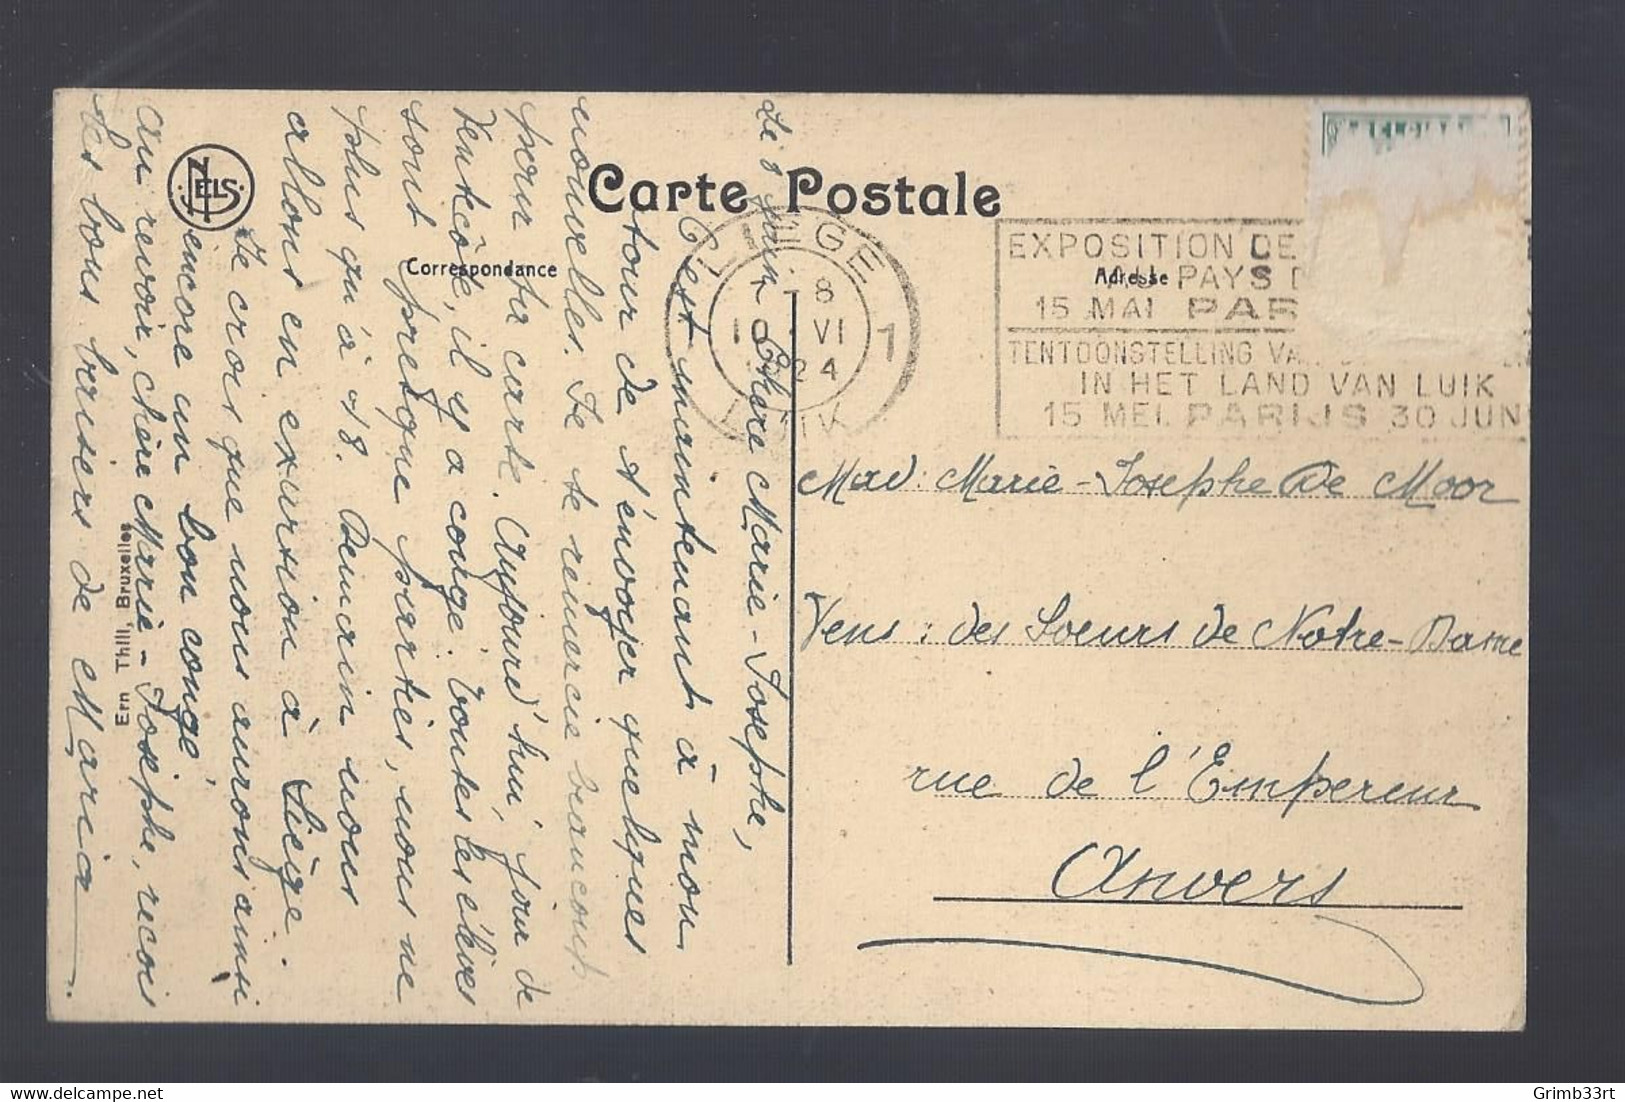 Carte Postale
Correspondance
Adresse
NELS
Ern Thill, Bruxelles
LIEGE 1
7-8
10 VI
1924
LUIK
EXPOSITION DE
AU PAYS D
15 MAI PAR
TENTOONSTELLING VA
IN HET LAND VAN LUIK
15 MEI. PARIJS 30 JUN
Le 8 juin
Chère Marie-Josephe,
C'est maintenant à mon
tour de t'envoyer quelques
nouvelles. Je te remercie beaucoup
pour ta carte. Aujourd'hui, jour de
Pentcôte, il y a congé. Toutes les élèves
sont presque parties, nous ne
plus qu'à 18. Demain nous
allons en exursion à Liège.
Je crois que nous aurons ainsi
encore un bon congé.
Au revoir, chère Marie-Josephe, recois
les bons baisers de Maria.
Mad: Marie-Josephe De Moor
Pens: des Soeurs de Notre-Dame
rue de l'Empereur
Anvers
www.delcampe.net
Grimb33rt